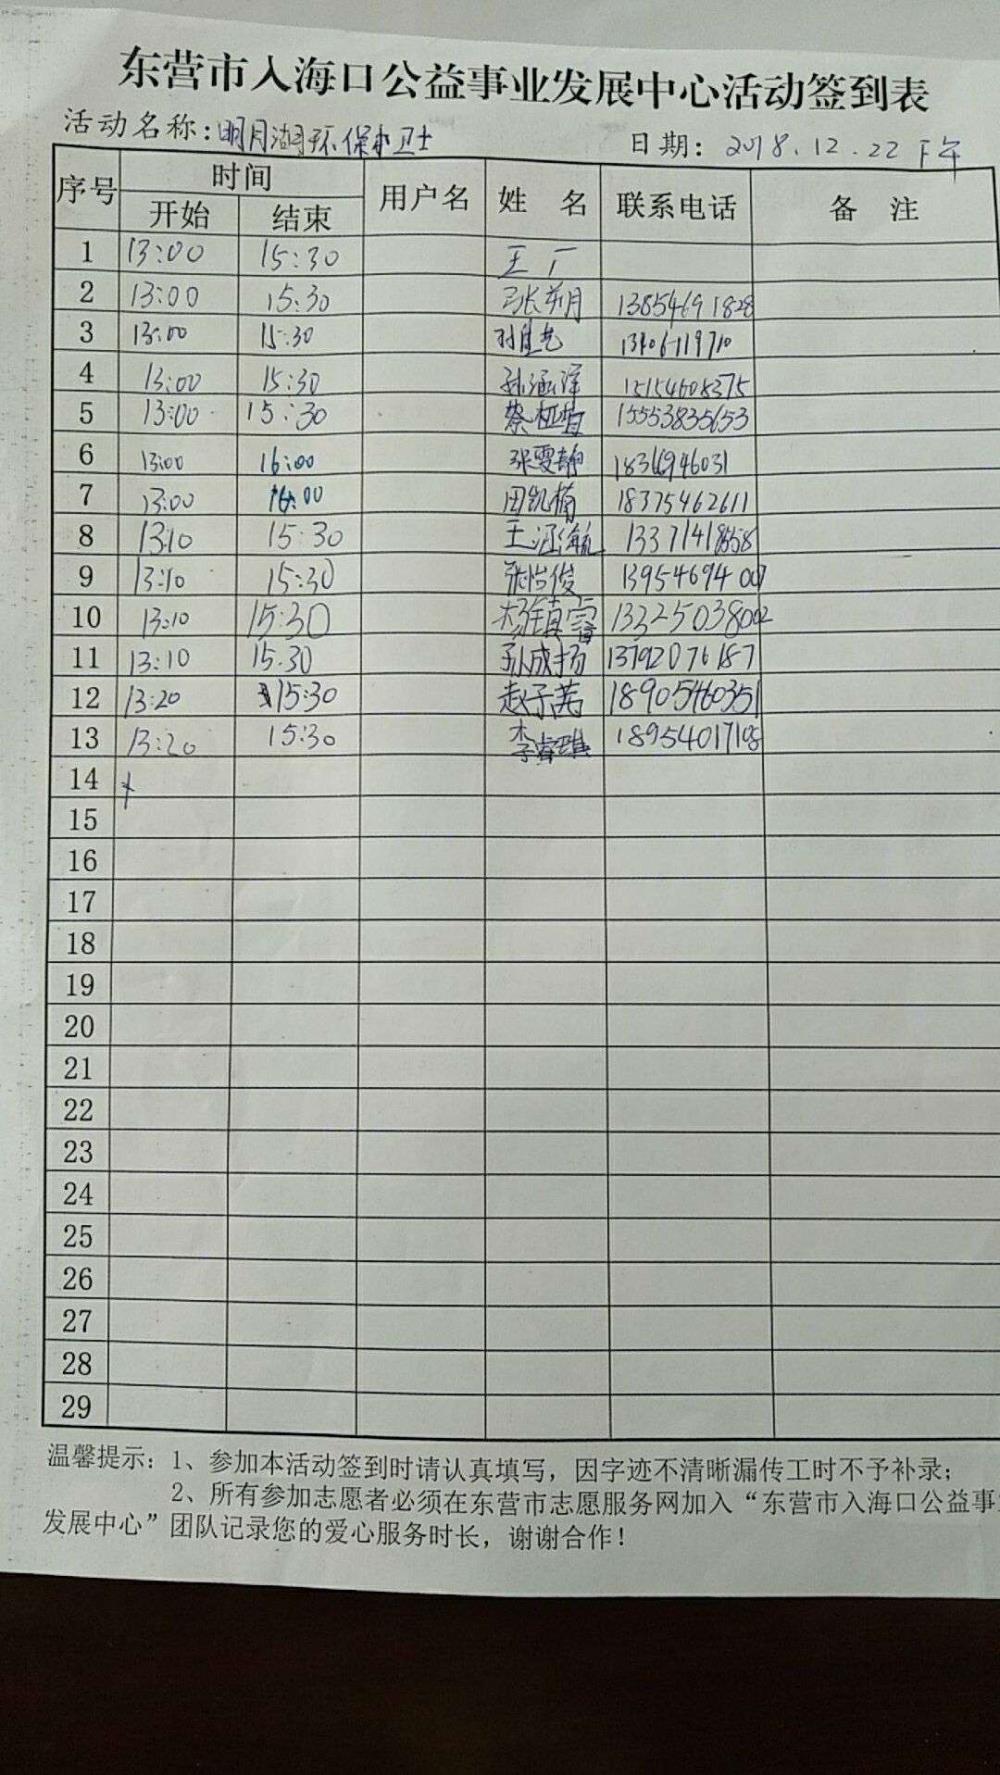 东营市入海口公益事业发展中心活动签到表
活动名称:明月湖环保小卫士 日期: 2018.12.22 下午
序号 时间 用户名 姓 名 联系电话 备 注
开始 结束
1 13:00 15:30 王厂
2 13:00 15:30 张朔月 13854691828
3 13:00 15:30
4 13:00 15:30 孙涵泽 15154608375
5 13:00 15:30 15553835653
6 13:00 16:00 张雯静 18366946031
7 13:00 16:00 田凯楠 18375462611
8 13:10 15:30 王涵航
9 13:10 15:30 张怡俊 13954694007
10 13:10 15:30 杨镇睿 13325038002
11 13:10 15.30 孙成扬 13792076187
12 13:20 15:30 赵子茜 18905460351
13 13:20 15:30 李睿琪 18954017108
14
15
16
17
18
19
20
21
22
23
24
25
26
27
28
29
温馨提示: 1、参加本活动签到时请认真填写，因字迹不清晰漏传工时不予补录;
2、所有参加志愿者必须在东营市志愿服务网加入“东营市入海口公益事
发展中心”团队记录您的爱心服务时长，谢谢合作!